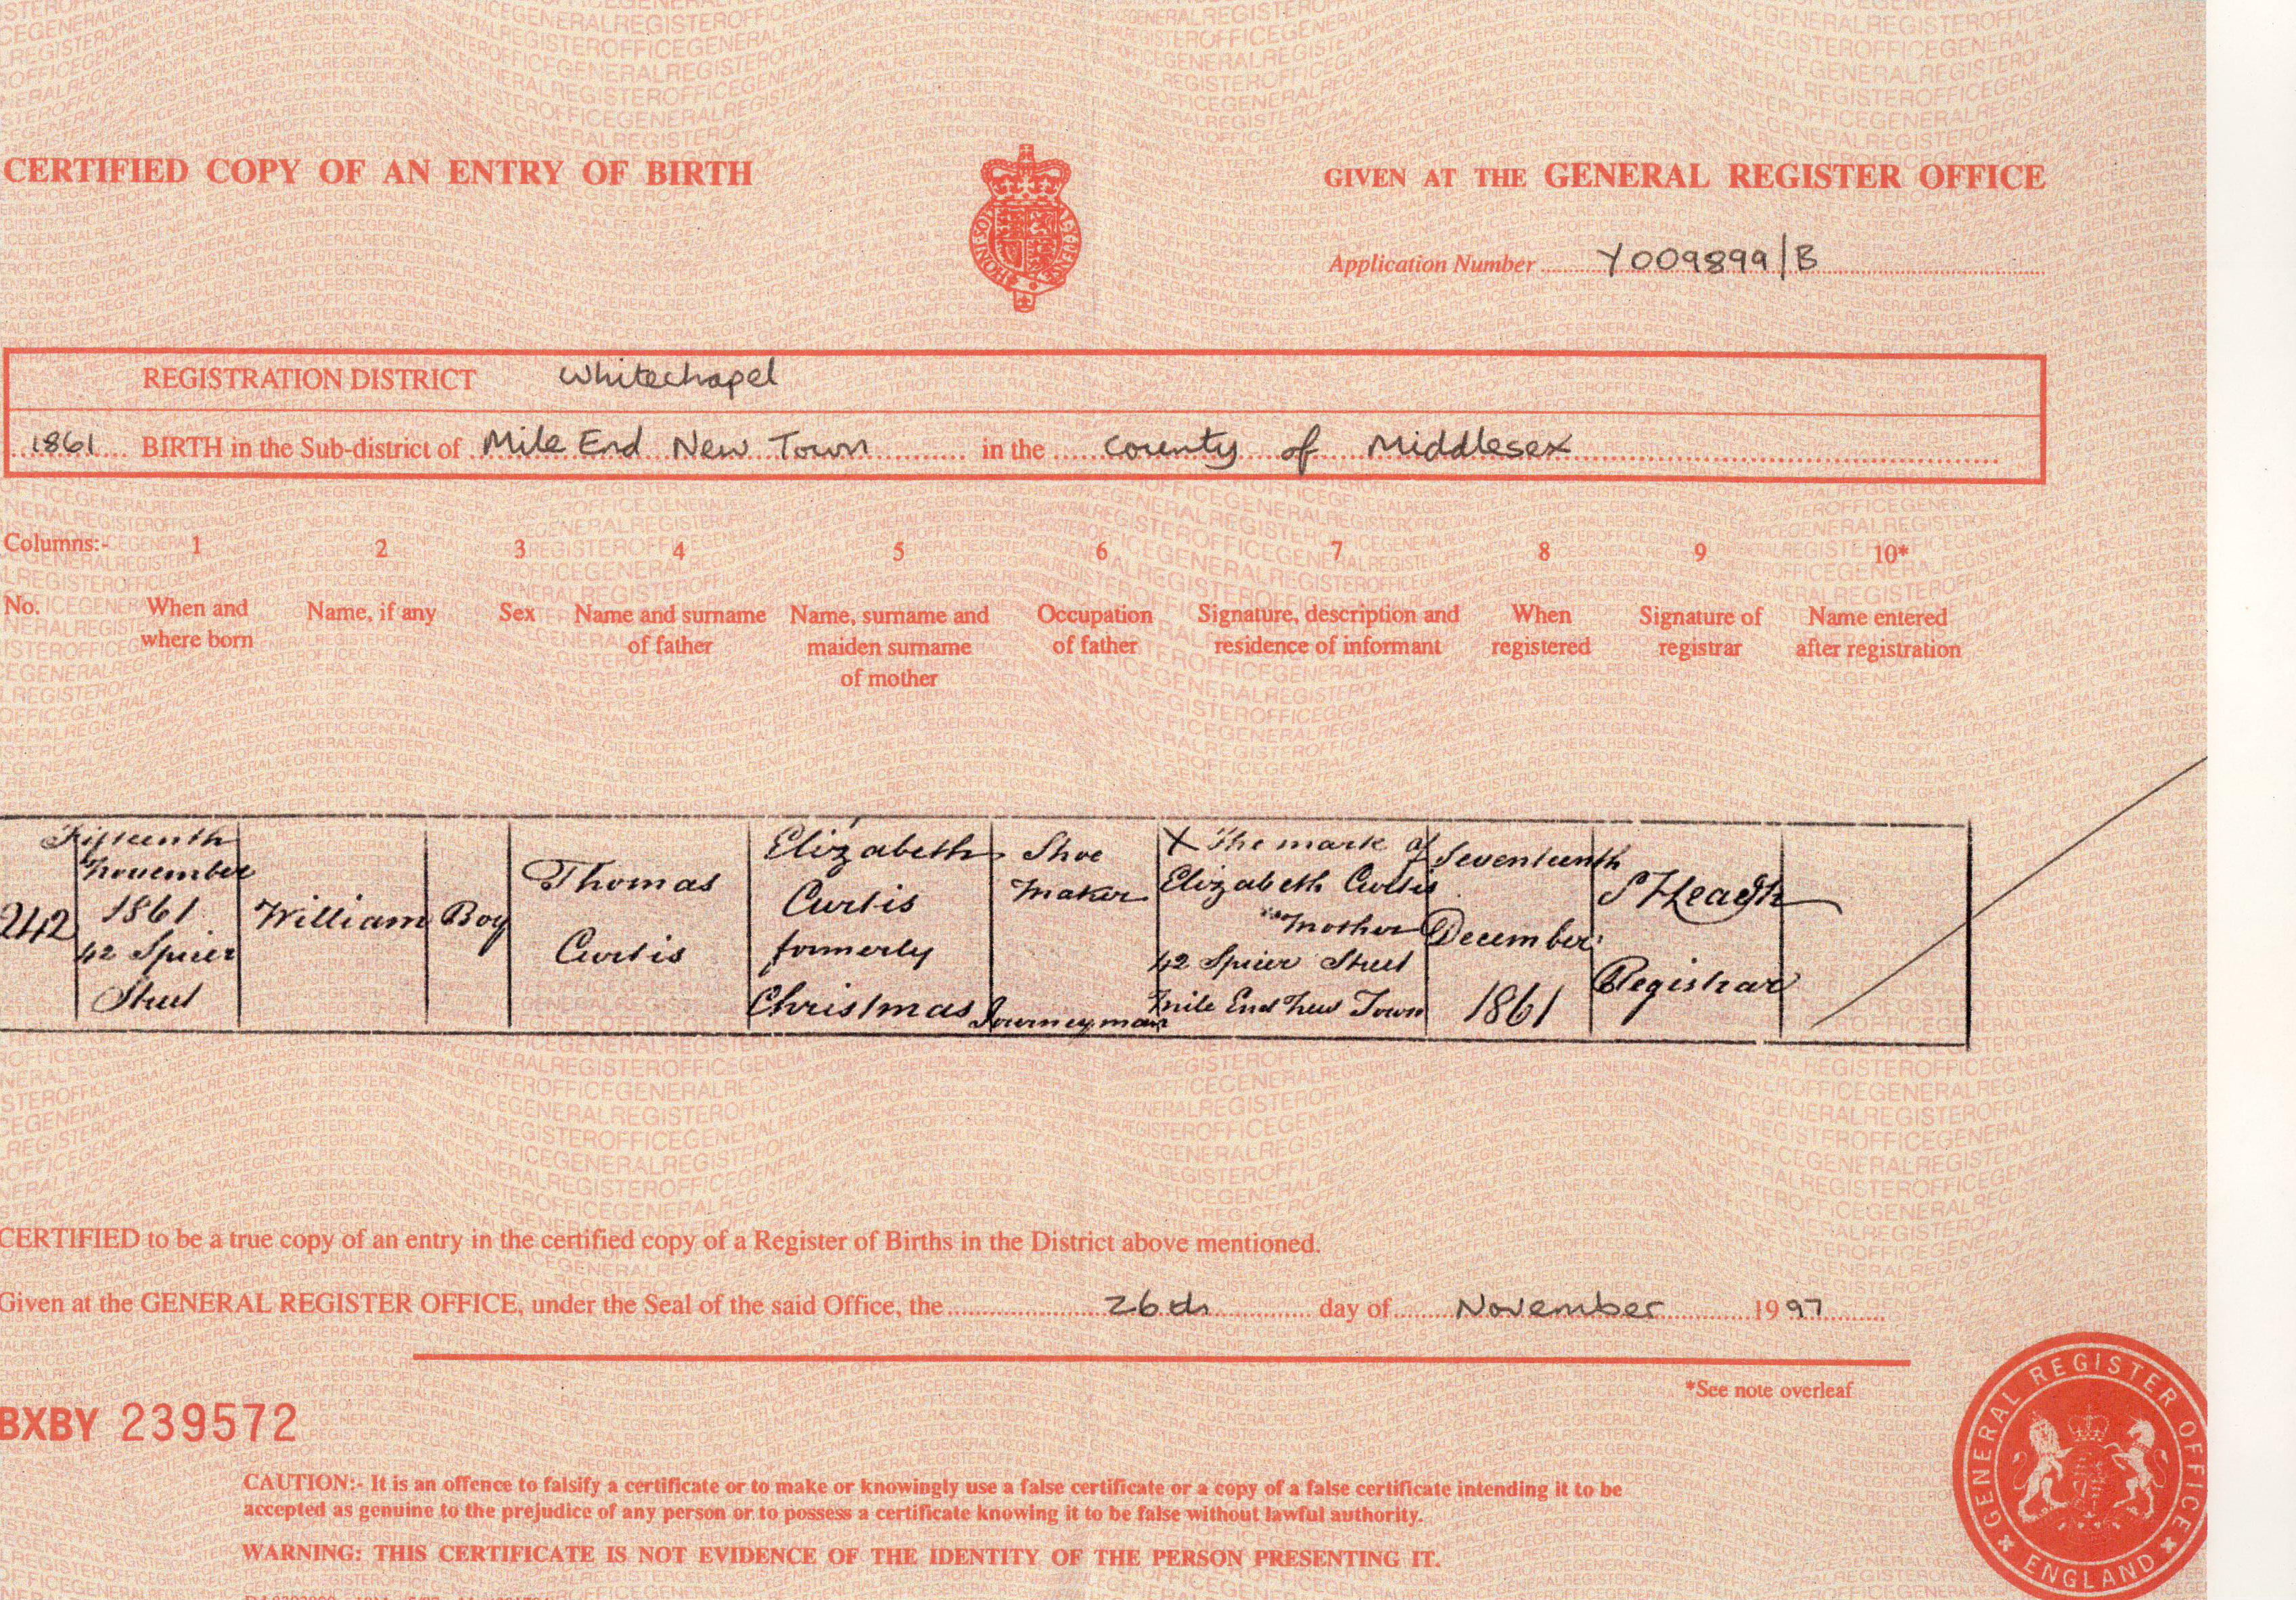 CERTIFIED COPY OF AN ENTRY OF BIRTH
GIVEN AT THE GENERAL REGISTER OFFICE
Application Number Y009899/B
REGISTRATION DISTRICT Whitechapel
1861 BIRTH in the Sub-district of Mile End New Town in the County of Middlesex
Columns:- 1 2 3 4 5 6 7 8 9 10*
No.
When and
where born
Name, if any
Sex
Name and surname
of father
Name, surname and
maiden surname
of mother
Occupation
of father
Signature, description and
residence of informant
When
registered
Signature of
registrar
Name entered
after registration
242
Fifteenth
November
1861
42 Spicer
Street
William
Boy
Thomas
Curtis
Elizabeth
Curtis
formerly
Christmas
Shoe
Maker
Journeyman
X The mark of
Elizabeth Curtis
Mother
42 Spicer Street
Mile End New Town
Seventeenth
December
1861
Registrar
CERTIFIED to be a true copy of an entry in the certified copy of a Register of Births in the District above mentioned.
Given at the GENERAL REGISTER OFFICE, under the Seal of the said Office, the 26th day of November 1997
*See note overleaf
BXBY 239572
CAUTION:- It is an offence to falsify a certificate or to make or knowingly use a false certificate or a copy of a false certificate intending it to be
accepted as genuine to the prejudice of any person or to possess a certificate knowing it to be false without lawful authority.
WARNING: THIS CERTIFICATE IS NOT EVIDENCE OF THE IDENTITY OF THE PERSON PRESENTING IT.
GENERAL REGISTER OFFICE
ENGLAND